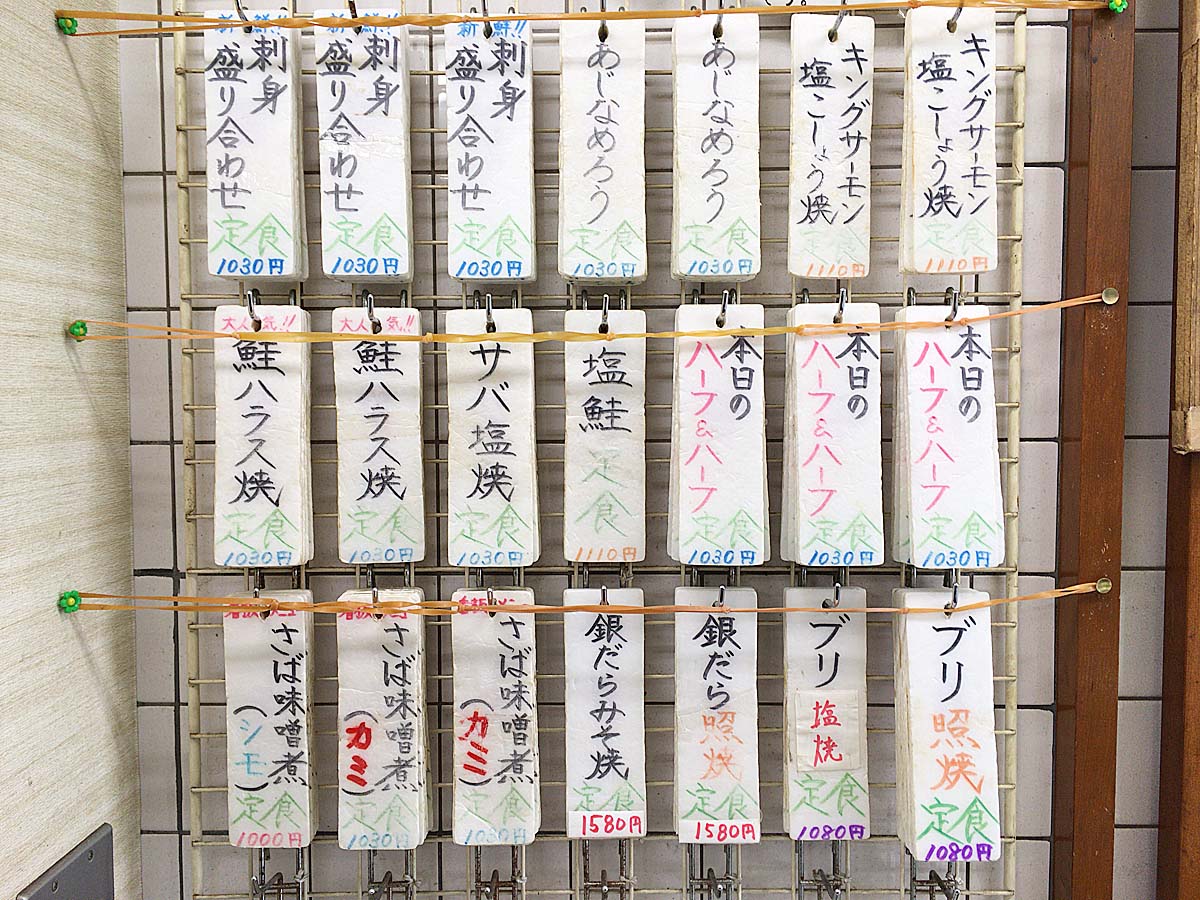 新鮮!!
刺身
盛り合わせ
定食
1030円
新鮮!!
刺身
盛り合わせ
定食
1030円
新鮮!!
刺身
盛り合わせ
定食
1030円
あじなめろう
定食
1030円
あじなめろう
定食
1030円
キングサーモン
塩こしょう焼
定食
1110円
キングサーモン
塩こしょう焼
定食
1110円
大人気!!
鮭ハラス焼
定食
1030円
大人気!!
鮭ハラス焼
定食
1030円
サバ塩焼
定食
1030円
塩鮭定食
1110円
本日の
ハーフ&ハーフ
定食
1030円
本日の
ハーフ&ハーフ
定食
1030円
本日の
ハーフ&ハーフ
定食
1030円
さば味噌煮
(シモ)
定食
1000円
さば味噌煮
(カミ)
定食
1030円
さば味噌煮
(カミ)
定食
1030円
銀だらみそ焼
定食
1580円
銀だら
照焼
定食
1580円
ブリ
塩焼
定食
1080円
ブリ
照焼
定食
1080円